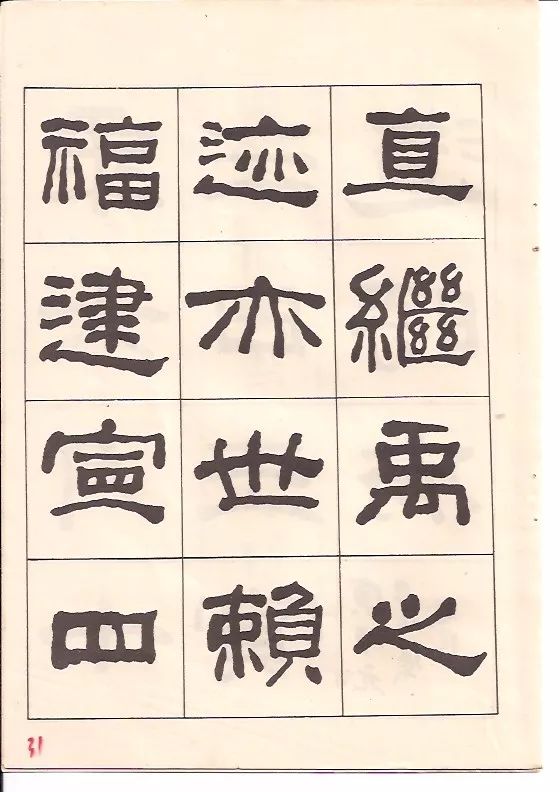 直繼禹之
迹亦世賴
福建寧四
31